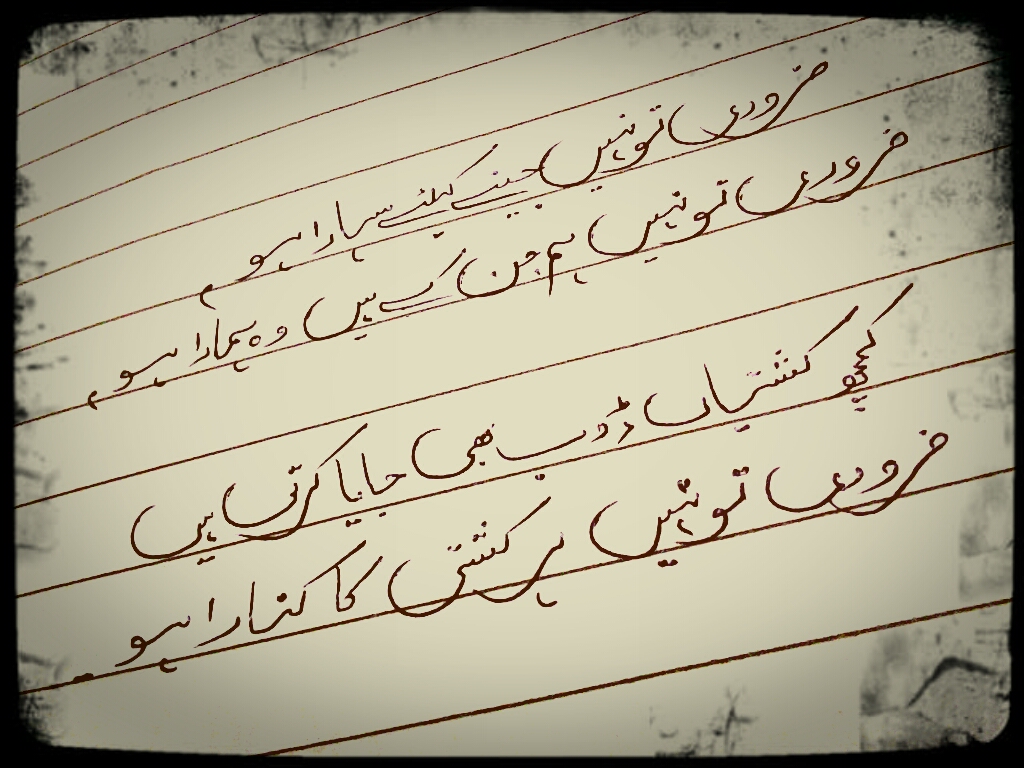 ضروری تو نہیں جینے کیلئے سہارا ہو،
ضروری تو نہیں ہم جن کے ہیں وہ ہمارا ہو،
کچھ کشتیاں ڈوب بھی جایا کرتی ہیں
ضروری تو نہیں ہر کشتی کا کنارا ہو۔